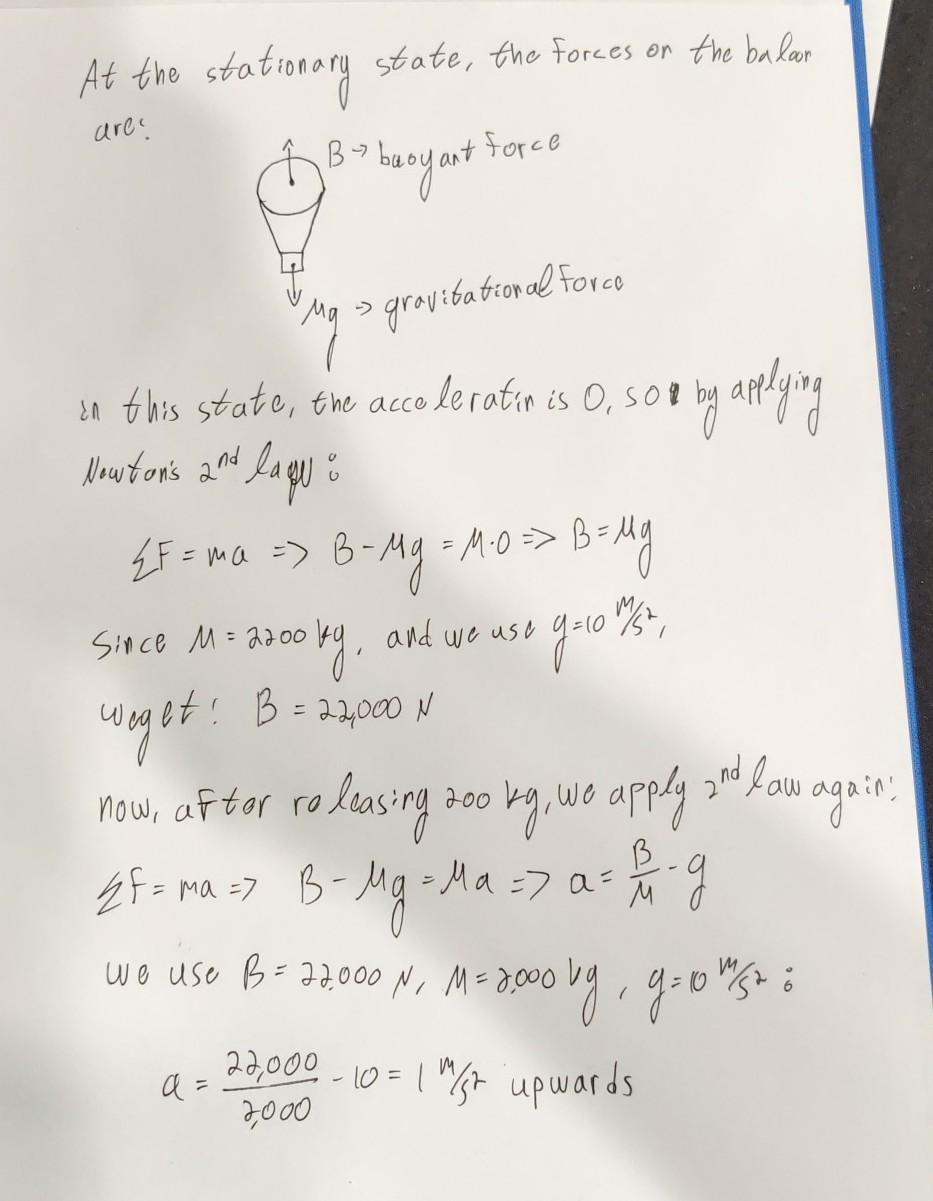 At the stationary state, the forces on the baloon
are:
B → buoyant force
Mg → gravitational force
in this state, the acceleratin is 0, so by applying
Newton's 2nd law:
ΣF = ma => B - Mg = M·0 => B = Mg
Since M = 2200 kg, and we use g=10 m/s²,
we get: B = 22,000 N
now, after releasing 200 kg, we apply 2nd law again:
ΣF = ma => B - Mg = Ma => a = B/M - g
we use B = 22,000 N, M = 2,000 kg, g=10 m/s² :
a = 22,000/2,000 - 10 = 1 m/s² upwards